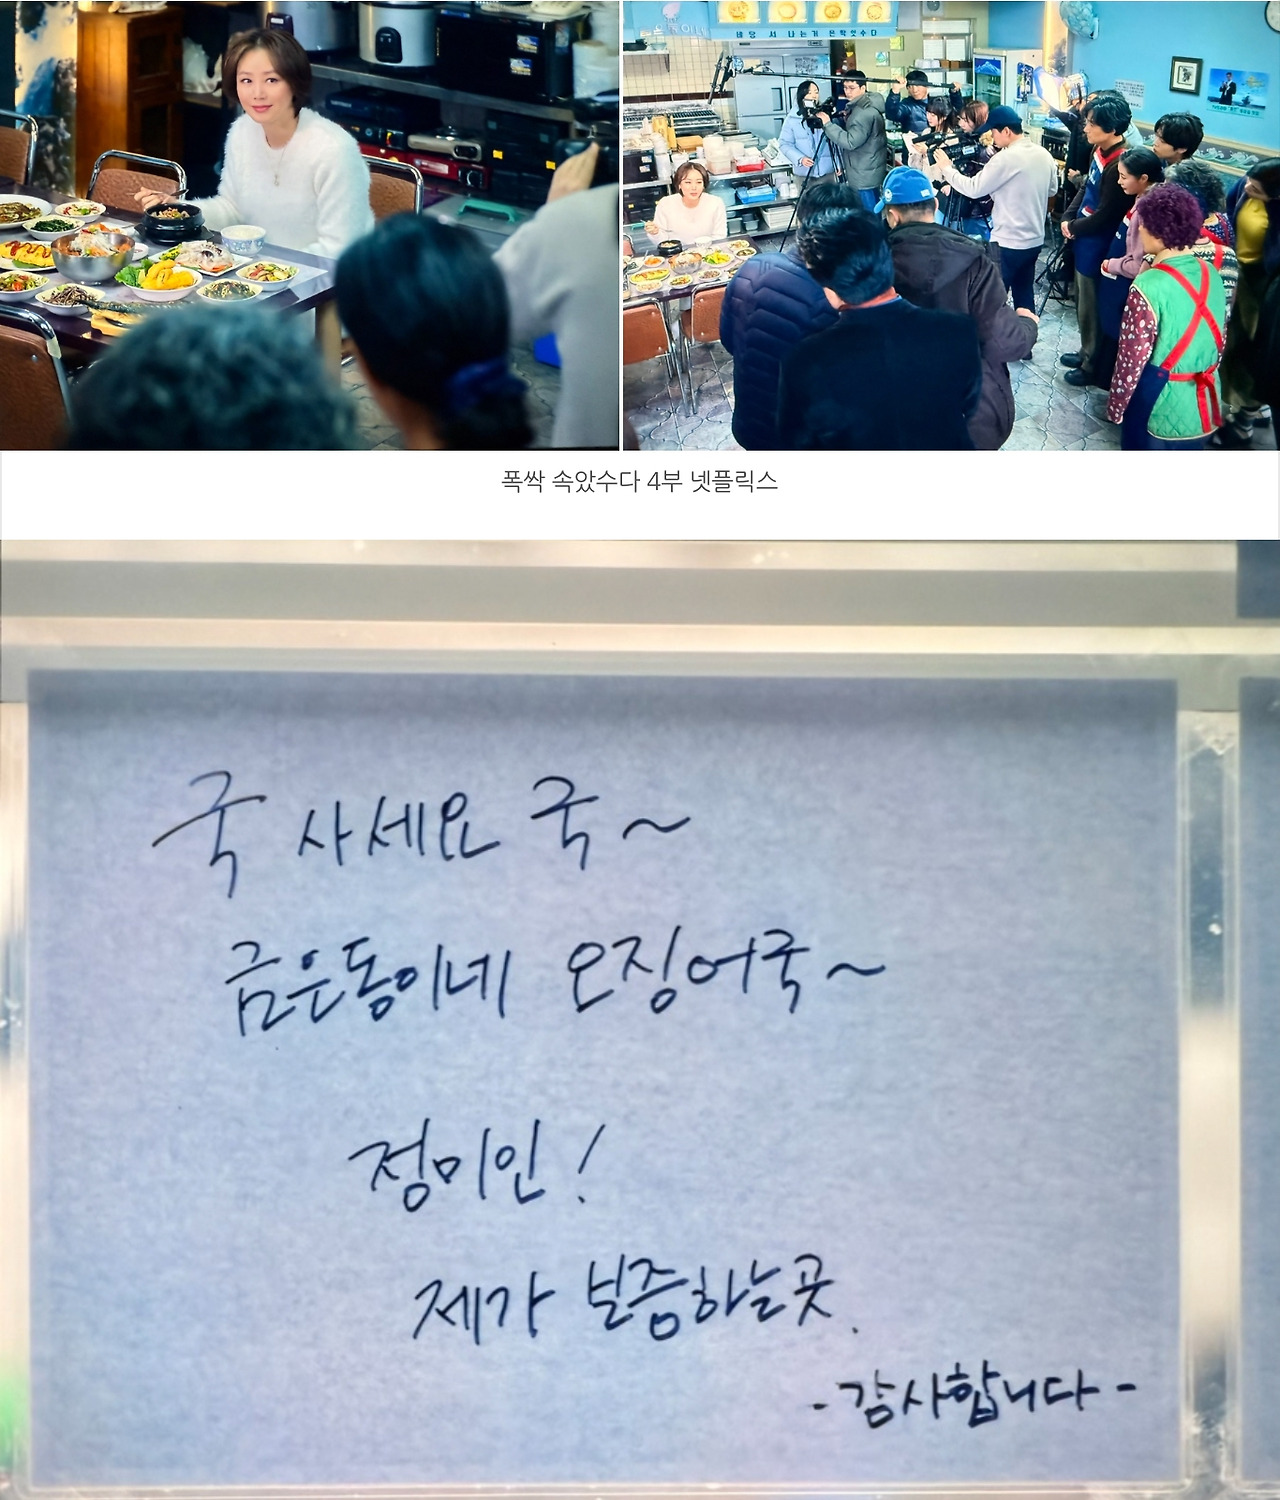 폭싹 속았수다 4부 넷플릭스
국 사세요 국~
금은동이네 오징어국~
정미인!
제가 보증하는곳.
-감사합니다-